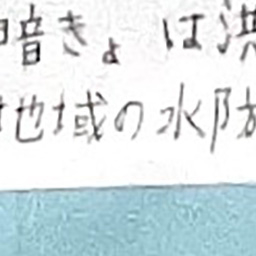 暗きょは洪
地域の水防